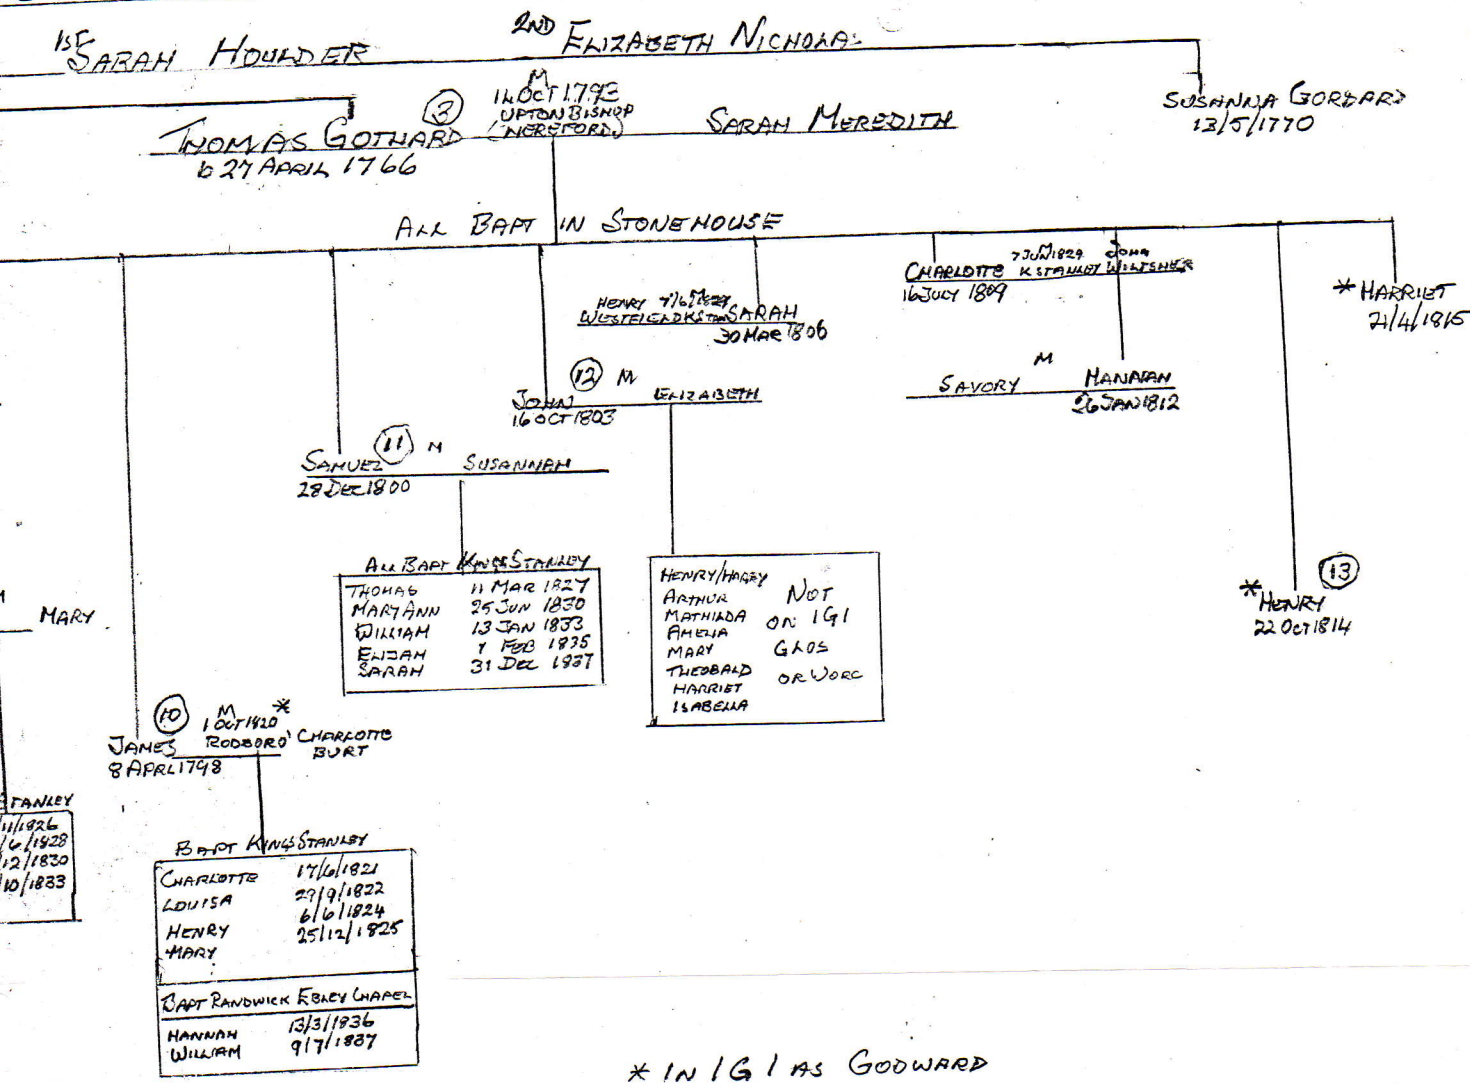 1ST SARAH HOULDER
2ND ELIZABETH NICHOLA
SUSANNA GORDARD
13/5/1770
THOMAS GOTHARD
b 27 APRIL 1766
3
M
OCT 1793
UPTON BISHOP
(HEREFORD)
SARAH MEREDITH
ALL BAPT IN STONEHOUSE
HENRY
WESTFIELD SARAH
30 MAR 1806
CHARLOTTE 7 JUN 1829 JOHN
K STANLEY WILTSHER
16 JULY 1809
* HARRIET
21/4/1815
JOHN 12 M ELIZABETH
16 OCT 1803
SAVORY M HANNAH
26 JAN 1812
SAMUEL 11 M SUSANNAH
28 DEC 1800
ALL BAPT KINGS STANLEY
THOMAS 11 MAR 1827
MARY ANN 25 JUN 1830
WILLIAM 13 JAN 1833
ELIJAH 1 FEB 1835
SARAH 31 DEC 1837
HENRY/HARRY
ARTHUR
MATHILDA
AMELIA
MARY
THEOBALD
HARRIET
ISABELLA
NOT
ON IGI
GLOS
OR WORC
13
* HENRY
22 OCT 1814
MARY
10
M *
1 OCT 1820
JAMES RODBORO' CHARLOTTE
BURT
8 APRL 1798
STANLEY
/11/1826
/6/1828
/12/1830
/10/1833
BAPT KINGS STANLEY
CHARLOTTE 17/6/1821
LOUISA 29/9/1822
6/6/1824
HENRY 25/12/1825
MARY
BAPT RANDWICK EBLEY CHAPEL
HANNAH 13/3/1836
WILLIAM 9/7/1837
* IN IGI AS GODWARD